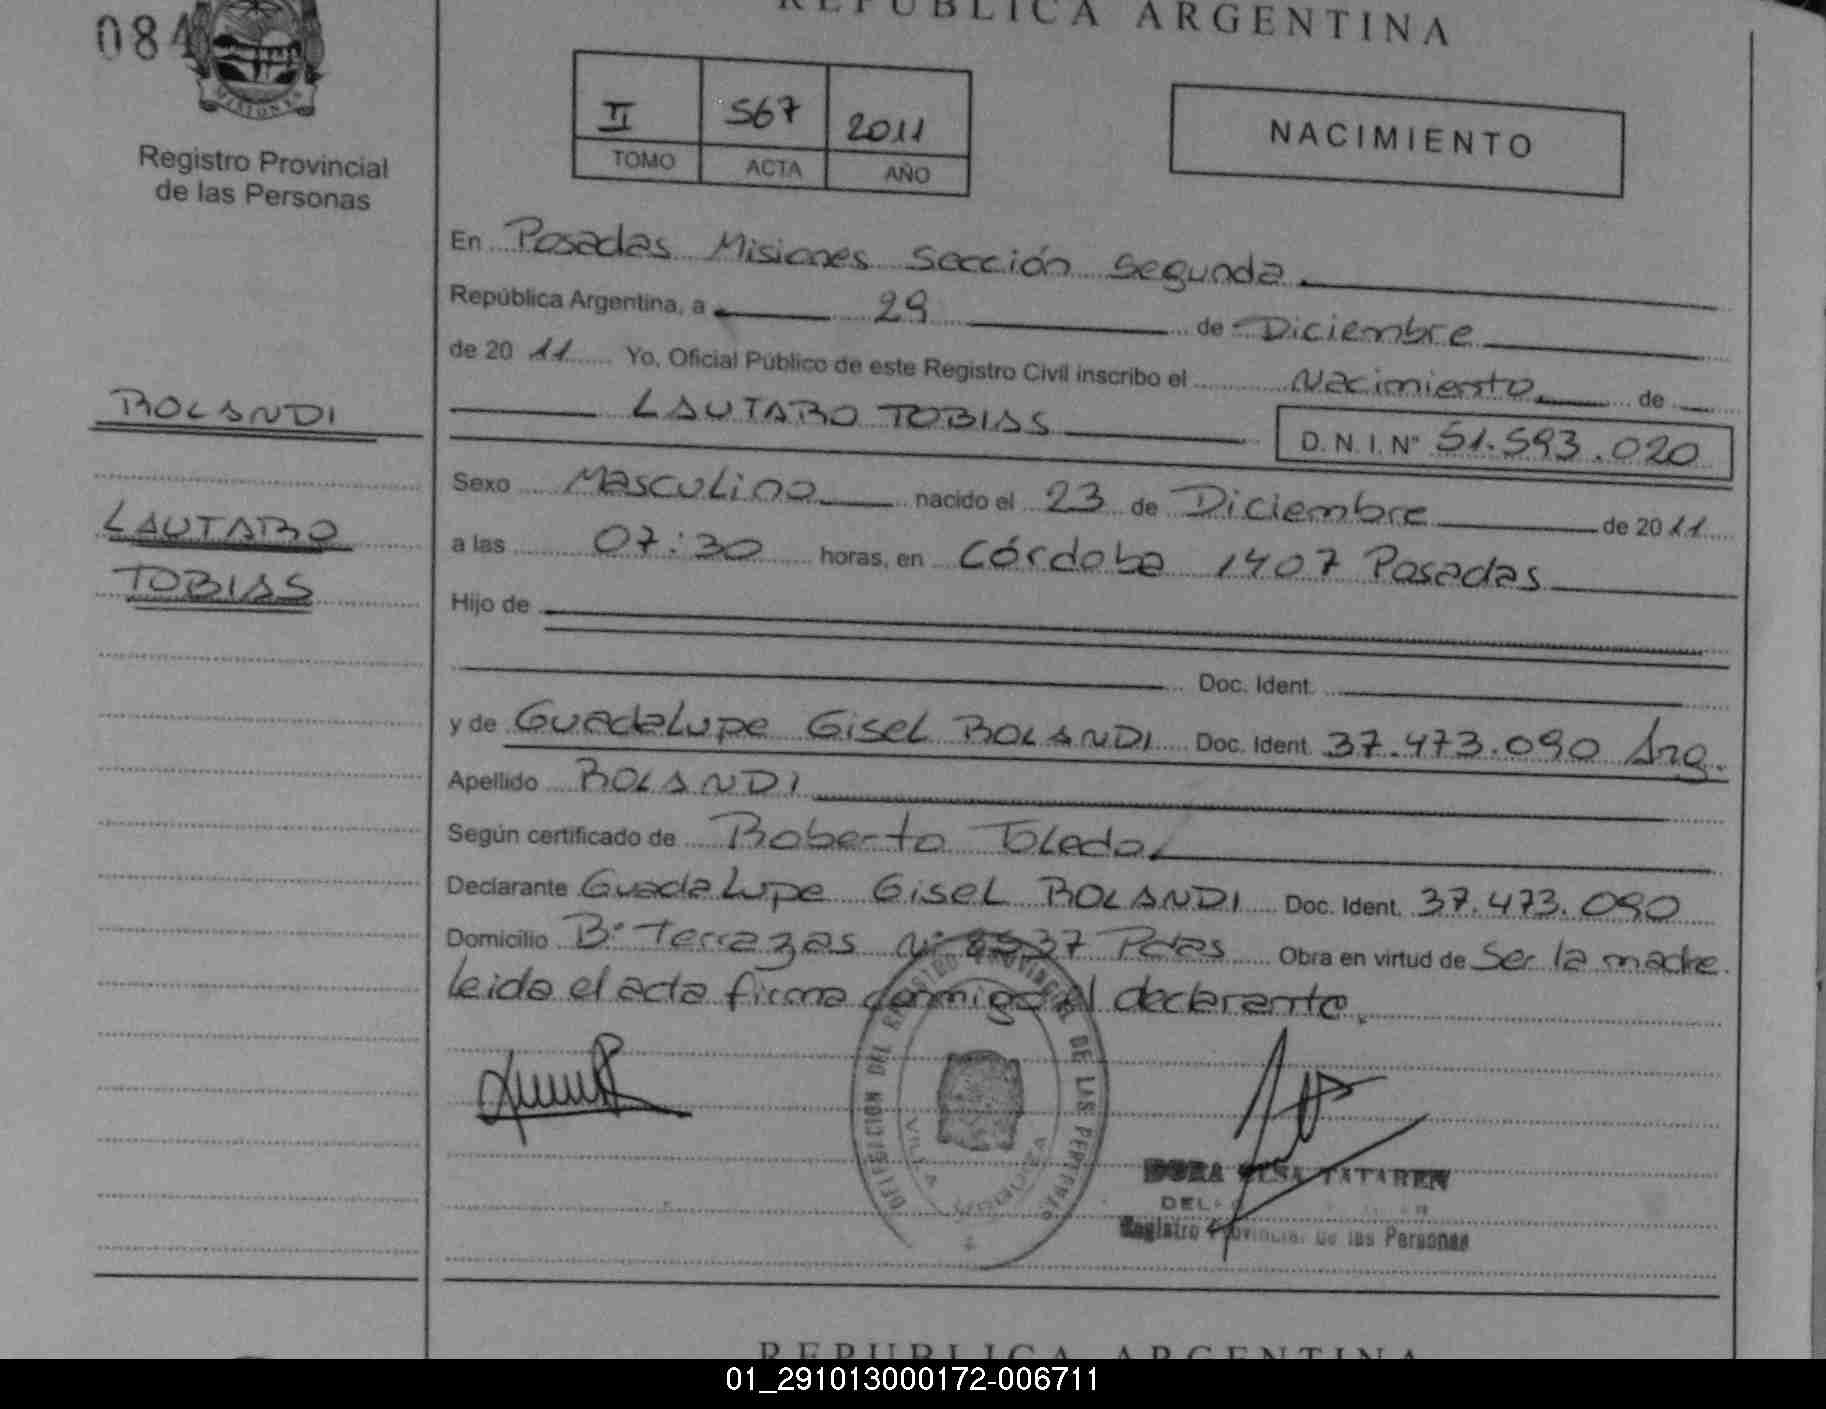 REPUBLICA ARGENTINA
084
MISIONES
Registro Provincial
de las Personas
II 567 2011
TOMO ACTA AÑO
NACIMIENTO
En Posadas Misiones Sección Segunda
República Argentina, a 29 de Diciembre
de 2011 Yo, Oficial Público de este Registro Civil inscribo el Nacimiento de
LAUTARO TOBIAS D.N.I.N° 51.593.020
ROLANDI
LAUTARO
TOBIAS
Sexo Masculino nacido el 23 de Diciembre de 2011
a las 07:30 horas, en Córdoba 1407 Posadas
Hijo de
Doc. Ident.
y de Guadalupe Gisel ROLANDI Doc. Ident. 37.473.090 Arg.
Apellido ROLANDI
Según certificado de Roberto Toledo
Declarante Guadalupe Gisel ROLANDI Doc. Ident. 37.473.090
Domicilio B° Terrazas N° Pdas Obra en virtud de Ser la madre
leida el acta firma conmigo el declarante.
DELEGACION DEL REGISTRO PROVINCIAL DE LAS PERSONAS
VILLA
DORA ELSA TATAREN
Registro Provincial de las Personas
REPUBLICA ARGENTINA
01_291013000172-006711